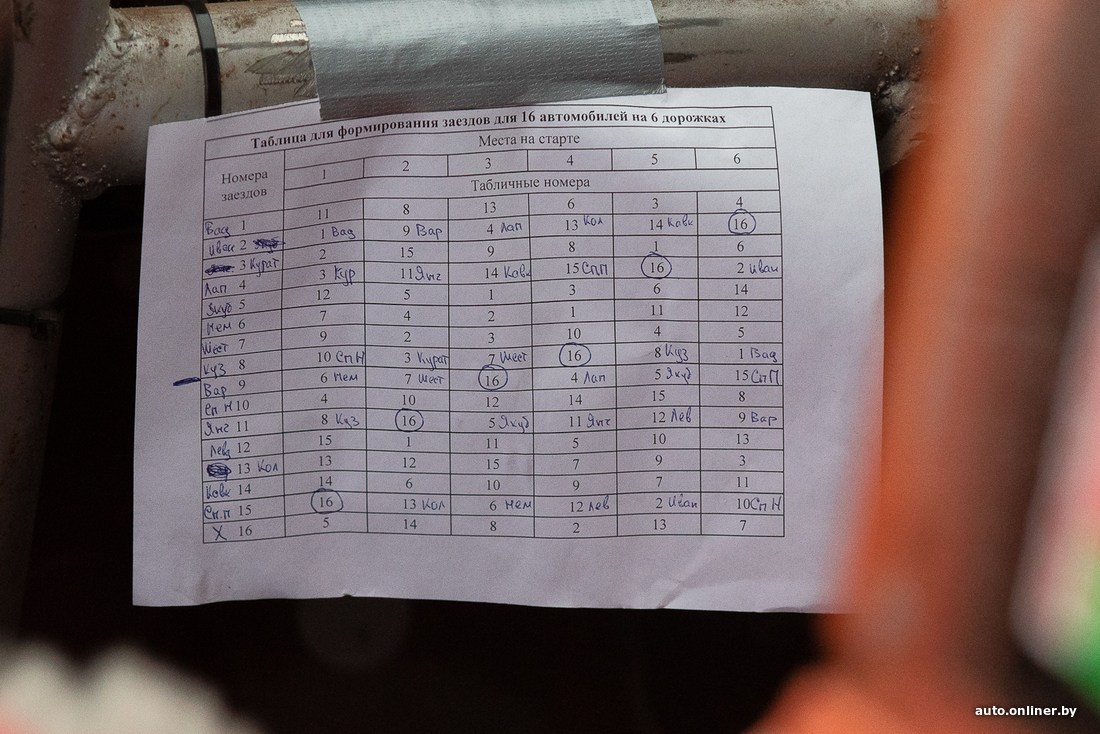 Таблица для формирования заездов для 16 автомобилей на 6 дорожках
Номера заездов
Места на старте
1 2 3 4 5 6
Табличные номера
Вад 1 11 8 13 6 3 4
Иван 2 1 Вад 9 Вар 4 Лап 13 Кол 14 Кавк 16
3 Курат 2 15 9 8 1 6
Лап 4 3 Кур 11 Янг 14 Кавк 15 СпП 16 2 Иван
Якуб 5 12 5 1 3 6 14
Нем 6 7 4 2 1 11 12
Шест 7 9 2 3 10 4 5
Куз 8 10 СпН 3 Курат 7 Шест 16 8 Куз 1 Вад
Вар 9 6 Нем 7 Шест 16 4 Лап 5 Якуб 15 СпП
Сп Н 10 4 10 12 14 15 8
Янг 11 8 Куз 16 5 Якуб 11 Янг 12 Лев 9 Вар
Лев 12 15 1 11 5 10 13
13 Кол 13 12 15 7 9 3
Кавк 14 14 6 10 9 7 11
Сп.П 15 16 13 Кол 6 Нем 12 Лев 2 Иван 10 СпН
X 16 5 14 8 2 13 7
auto.onliner.by